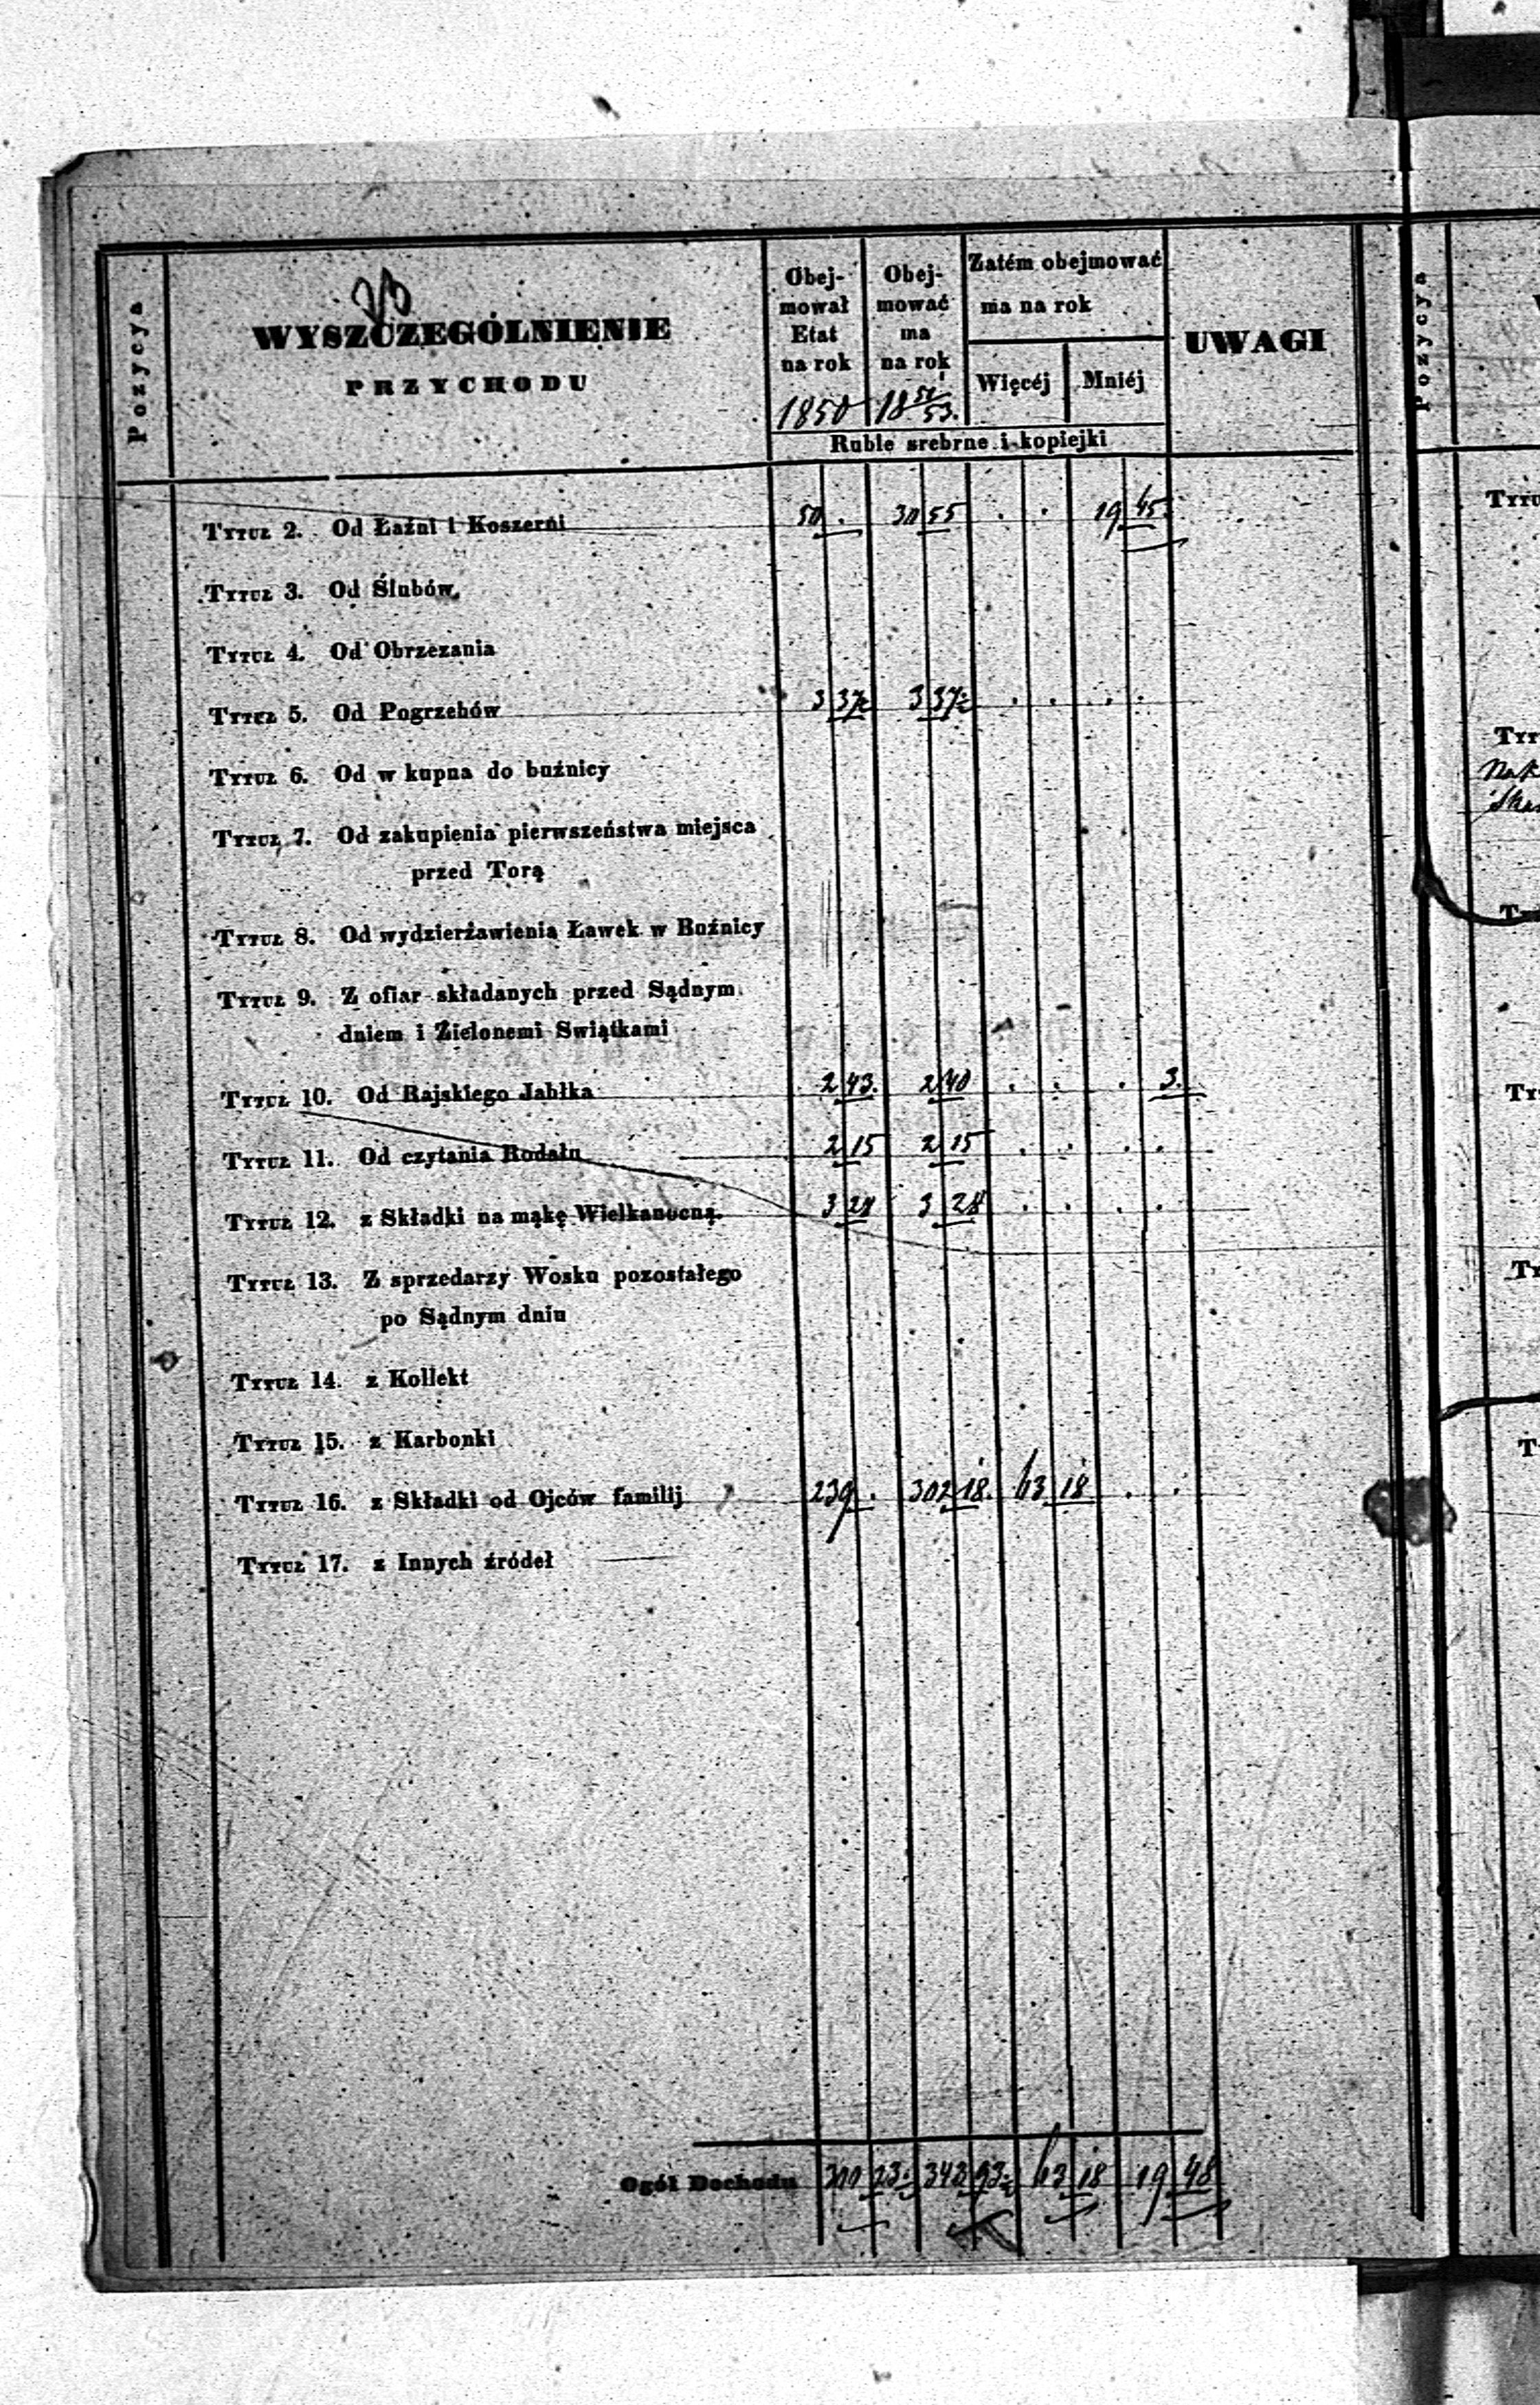 Pozycya
WYSZCZEGÓLNIENIE
PRZYCHODU
Obej-
mował
Etat
na rok
1850
Obej-
mować
ma
na rok
18 51/53.
Zatém obejmować
ma na rok
Więcéj
Mniéj
Ruble srebrne i kopiejki
UWAGI
Tytuł 2. Od Łaźni i Koszerni 50 . 30 55 . . 19 45.
Tytuł 3. Od Ślubów
Tytuł 4. Od Obrzezania
Tytuł 5. Od Pogrzebów 3 37½ 3 37½ . . . .
Tytuł 6. Od w kupna do buźnicy
Tytuł 7. Od zakupienia pierwszeństwa miejsca
przed Torą
Tytuł 8. Od wydzierżawienia Ławek w Buźnicy
Tytuł 9. Z ofiar składanych przed Sądnym
dniem i Zielonemi Swiątkami
Tytuł 10. Od Rajskiego Jabłka 2 43. 2 40 . . . 3.
Tytuł 11. Od czytania Rodału 2 15 2 15 . . . .
Tytuł 12. z Składki na mąkę Wielkanocną. 3 28 3 28 . . . .
Tytuł 13. Z sprzedarzy Wosku pozostałego
po Sądnym dniu
Tytuł 14. z Kollekt
Tytuł 15. z Karbonki
Tytuł 16. z Składki od Ojców familij 239 . 302 18. 63 18 . .
Tytuł 17. z Innych źródeł
Ogół Dochodu 300 23½ 343 93½ 63 18 19 48
Pozycya